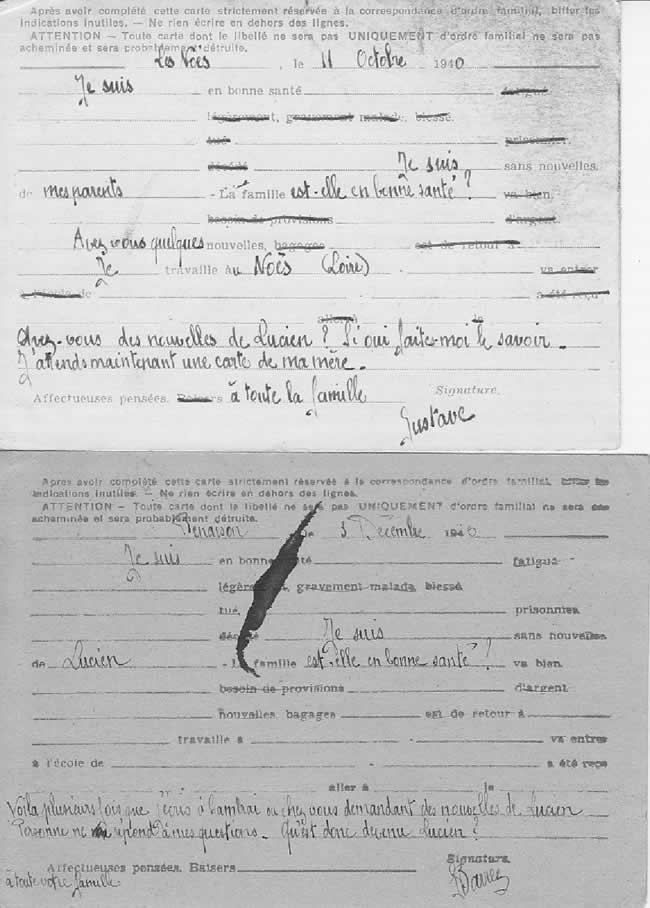 Après avoir complété cette carte strictement réservée à la correspondance d'ordre familial, biffer les
indications inutiles. — Ne rien écrire en dehors des lignes.
ATTENTION — Toute carte dont le libellé ne sera pas UNIQUEMENT d'ordre familial ne sera pas
acheminée et sera probablement détruite.
Les Noës, le 11 Octobre 1940
Je suis en bonne santé fatigué
légèrement, gravement malade, blessé.
tué prisonnier
décédé Je suis sans nouvelles
de mes parents - La famille est-elle en bonne santé ? va bien.
besoin de provisions d'argent
Avez vous quelques nouvelles, bagages est de retour à
Je travaille Au Noës (Loire) va entrer
à l'école de a été reçu
aller à le
Avez-vous des nouvelles de Lucien ? Si oui faites-moi le savoir.
J'attends maintenant une carte de ma mère.
Affectueuses pensées. Baisers à toute la famille Signature.
Gustave
Après avoir complété cette carte strictement réservée à la correspondance d'ordre familial, biffer les
indications inutiles. — Ne rien écrire en dehors des lignes.
ATTENTION — Toute carte dont le libellé ne sera pas UNIQUEMENT d'ordre familial ne sera pas
acheminée et sera probablement détruite.
Renaison le 3 Décembre 1940
Je suis en bonne santé fatigué
légèrement, gravement malade blessé
tué, prisonnier
décédé Je suis sans nouvelles
de Lucien - La famille est elle en bonne santé ? va bien
besoin de provisions d'argent
nouvelles bagages est de retour à
travaille à va entrer
à l'école de a été reçu
aller à le
Voilà plusieurs fois que j'écris à Cambrai ou chez vous demandant des nouvelles de Lucien
Personne ne répond à mes questions. Qu'est donc devenu Lucien ?
Affectueuses pensées. Baisers Signature
à toute votre famille.